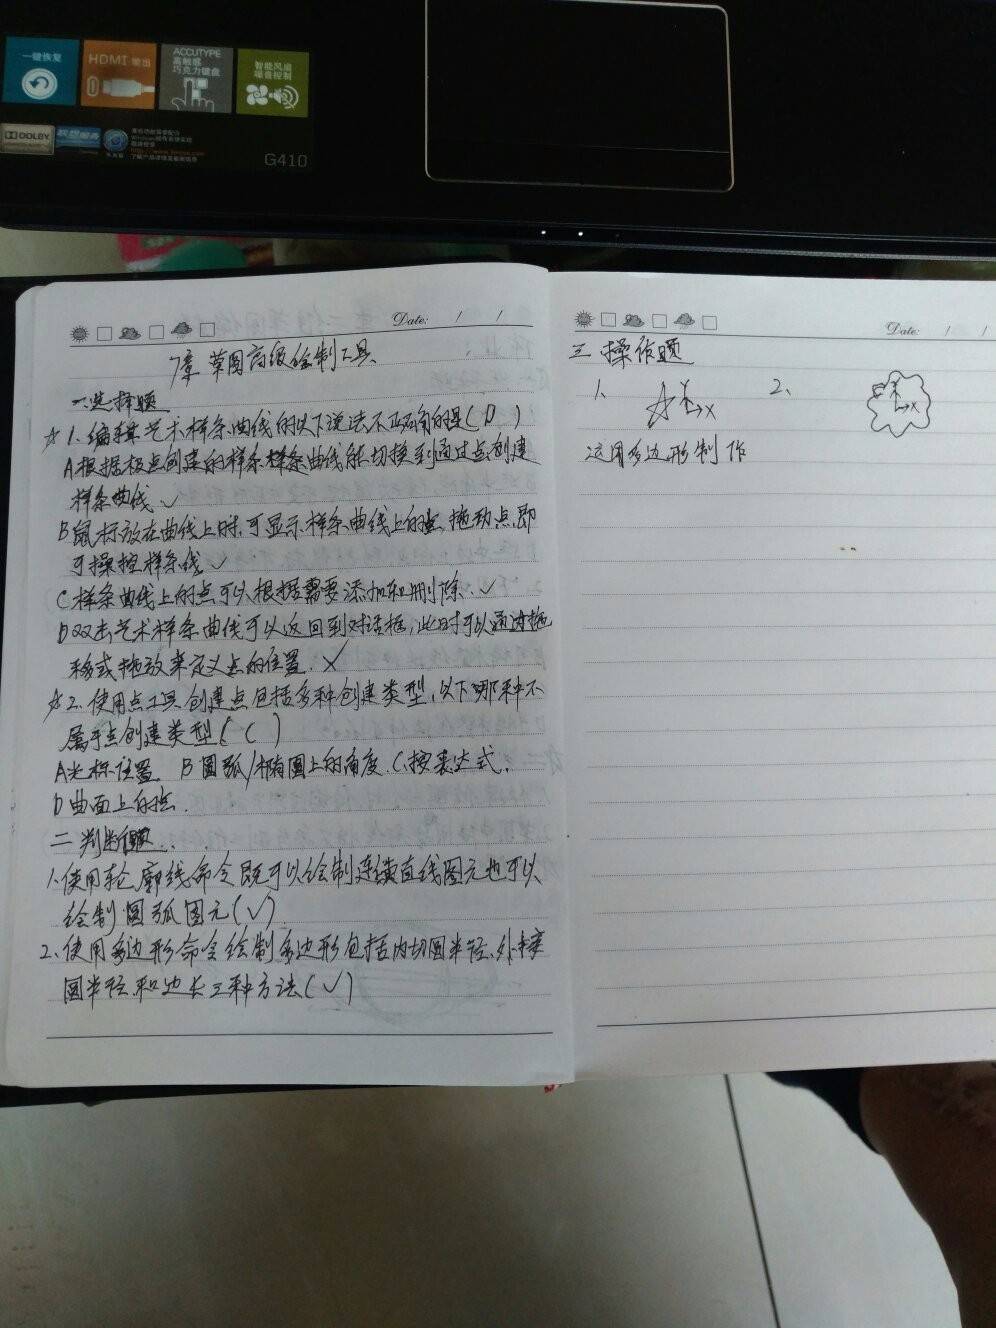 一键恢复
HDMI 输出
ACCUTYPE
高触感
巧克力键盘
智能风扇
噪音控制
DOLBY
G410
Date: / /
7章 草图高级绘制工具
一.选择题
☆1.编辑艺术样条曲线的以下说法不正确的是(D)
A根据极点创建的样条样条曲线能切换到通过点创建
样条曲线.✓
B鼠标放在曲线上时,可显示样条曲线上的点,拖动点即
可操控样条线✓
C样条曲线上的点可以根据需要添加和删除.✓
D双击艺术样条曲线可以返回到对话框,此时可以通过拖
移或拖放来定义点的位置.✗
☆2.使用点工具创建点包括多种创建类型,以下哪种不
属于点创建类型(C)
A光标位置 B圆弧/椭圆上的角度.C.按表达式.
D曲面上的点.
二 判断题..
1.使用轮廓线命令既可以绘制连续直线图元也可以
绘制圆弧图元(✓)
2.使用多边形命令绘制多边形包括内切圆半径.外接
圆半径和边长三种方法(✓)
Date: / /
三 操作题
1. X 2. X
运用多边形制作